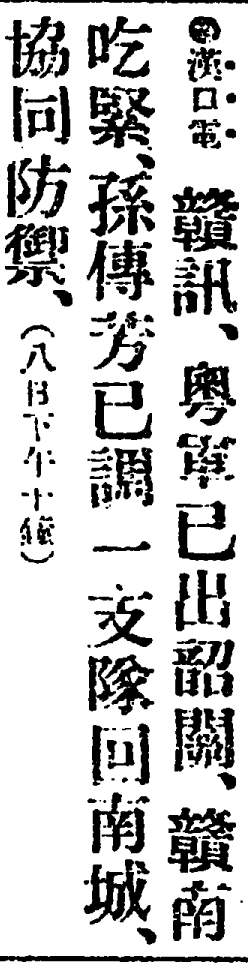 漢口電 贛訊、粤軍已出韶關、贛南
吃緊、孫傳芳已調一支隊回南城、
協同防禦、(八日下午十鐘)